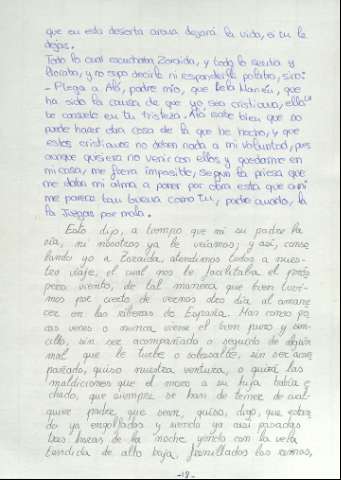 que en esta desierta arena dejará la vida, si tu le
dejas.
Todo lo cual escuchaba Zoraida, y todo lo sentía y
lloraba, y no supo decirle ni responderle palabra, sino:
- Plega a Alá, padre mío, que Lela Marién, que
ha sido la causa de que yo sea cristiana, ella
te consuele en tu tristeza. Alá sabe bien que no
pude hacer otra cosa de la que he hecho, y que
estos cristianos no deben nada a mi voluntad, pues
aunque quisiera no venir con ellos y quedarme en
mi casa, me fuera imposible, según la priesa que
me daba mi alma a poner por obra esta que a mi
me parece tan buena como tu, padre amado, la
la juzgas por mala.
Esto dijo, a tiempo que ni su padre la
oía, ni nosotros ya le veíamos; y así, conso
lando yo a Zoraida, atendimos todos a nues-
tro viaje, el cual nos le facilitaba el
pero viento, de tal manera que bien tuvi-
mos por cierto de vernos otro día al amane
cer en las riberas de España. Mas como po
cas veces o nunca viene el bien puro y sen-
cillo, sin ser acompañado o seguido de algún
mal que le turbe o sobresalte, sin ser acom
pañado, quiso nuestra ventura, o quizá las
maldiciones que el moro a su hija había e
chado, que siempre se han de temer de cual-
quier padre que sean, quiso, digo, que estan
do ya engolfados y siendo ya casi pasadas
tres horas de la noche yendo con la vela
tendida de alto baja, frenillados los remos,
-18-